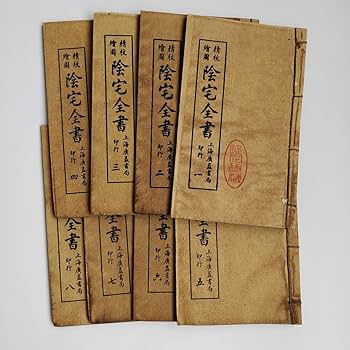 精校
繪圖
陰宅全書
上海廣益書局
印行
一
精校
繪圖
陰宅全書
上海廣益書局
印行
二
精校
繪圖
陰宅全書
上海廣益書局
印行
三
精校
繪圖
陰宅全書
上海廣益書局
印行
四
書
上海廣益書局
印行
五
書
上海廣益書局
印行
六
全書
上海廣益書局
印行
七
全書
上海廣益書局
印行
八